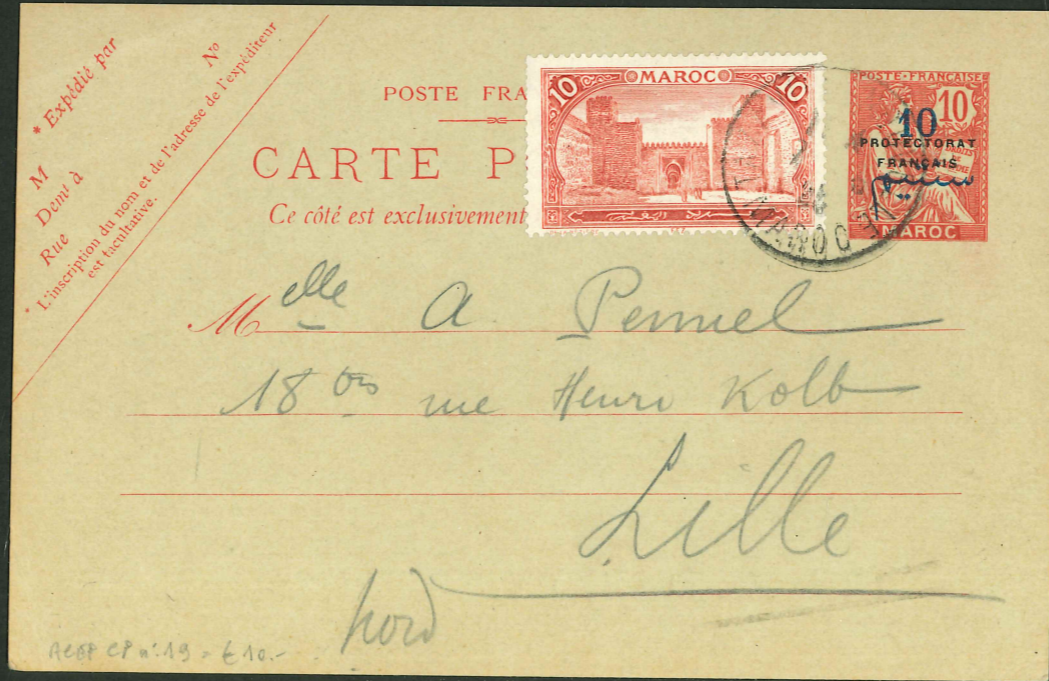 * Expédié par
N°
M
Demt à
Rue
* L'inscription du nom et de l'adresse de l'expéditeur
est facultative.
POSTE FRA
CARTE P
Ce côté est exclusivement
10 MAROC 10
POSTE-FRANÇAISE
10
10
PROTECTORAT
FRANÇAIS
MAROC
MAROC
Melle A Pennel
18 bis rue Henri Kolb
Lille
Nord
ACEP CP n°19 = € 10.-